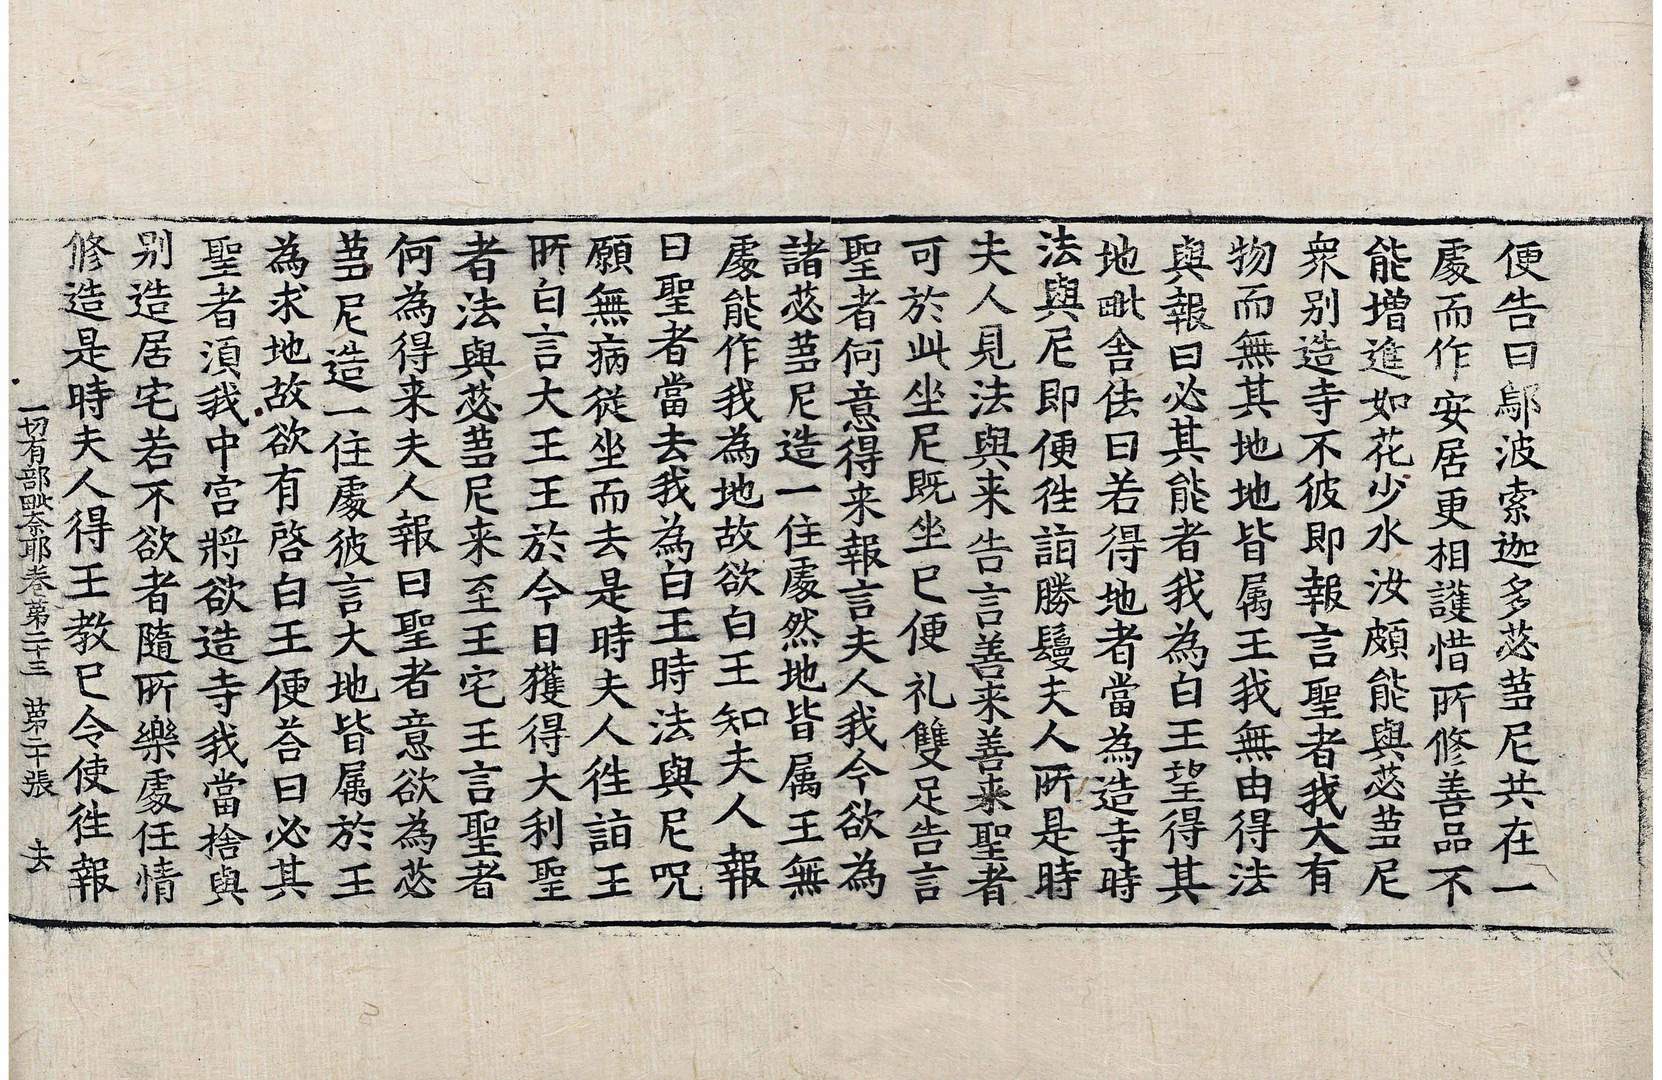 便告曰鄔波索迦多苾蒭尼共在一
處而作安居更相護惜所修善品不
能增進如花少水汝頗能與苾蒭尼
衆别造寺不彼即報言聖者我大有
物而無其地地皆属王我無由得法
與報曰必其能者我為白王望得其
地毗舍佉曰若得地者當為造寺時
法與尼即便徃詣勝鬘夫人所是時
夫人見法與来告言善来善来聖者
可於此坐尼既坐已便礼雙足告言
聖者何意得来報言夫人我今欲為
諸苾蒭尼造一住處然地皆属王無
處能作我為地故欲白王知夫人報
曰聖者當去我為白王時法與尼呪
願無病從坐而去是時夫人徃詣王
所白言大王王於今日獲得大利聖
者法與苾蒭尼来至王宅王言聖者
何為得来夫人報曰聖者意欲為苾
蒭尼造一住處彼言大地皆属於王
為求地故欲有啓白王便荅曰必其
聖者須我中宫將欲造寺我當捨與
别造居宅若不欲者隨所樂處任情
修造是時夫人得王教已令使徃報
一切有部毗奈耶卷第二十三　第二十張　去